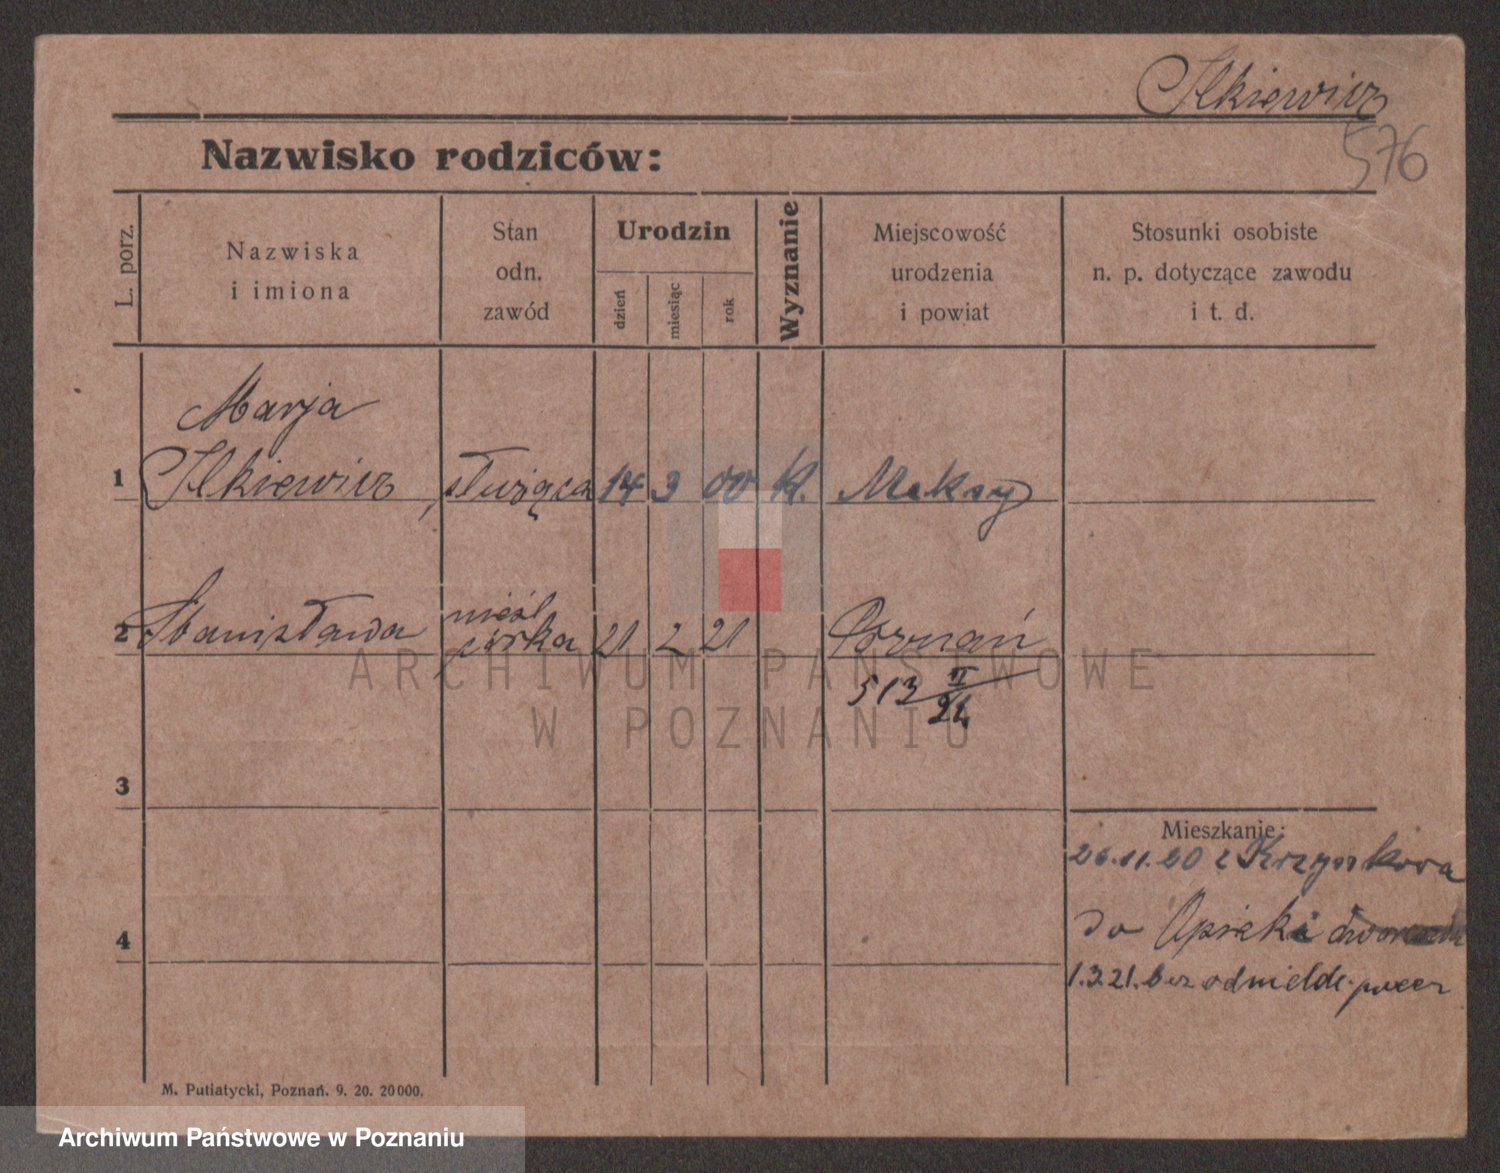 Ilkiewicz
576
Nazwisko rodziców:
L. porz.
Nazwiska
i imiona
Stan
odn.
zawód
Urodzin
dzień
miesiąc
rok
Wyznanie
Miejscowość
urodzenia
i powiat
Stosunki osobiste
n. p. dotyczące zawodu
i t. d.
Marja
1 Ilkiewicz, służąca 14 3 00 k.
nieśl
2 Stanisława córka 21 2 21 Poznań
513 II
ARCHIWUM PAŃSTWOWE
W POZNANIU
3
Mieszkanie:
26.11.20 z
4
do Opieki
1.3.21. bez odmelde.
M. Putiatycki, Poznań. 9. 20. 20000.
Archiwum Państwowe w Poznaniu